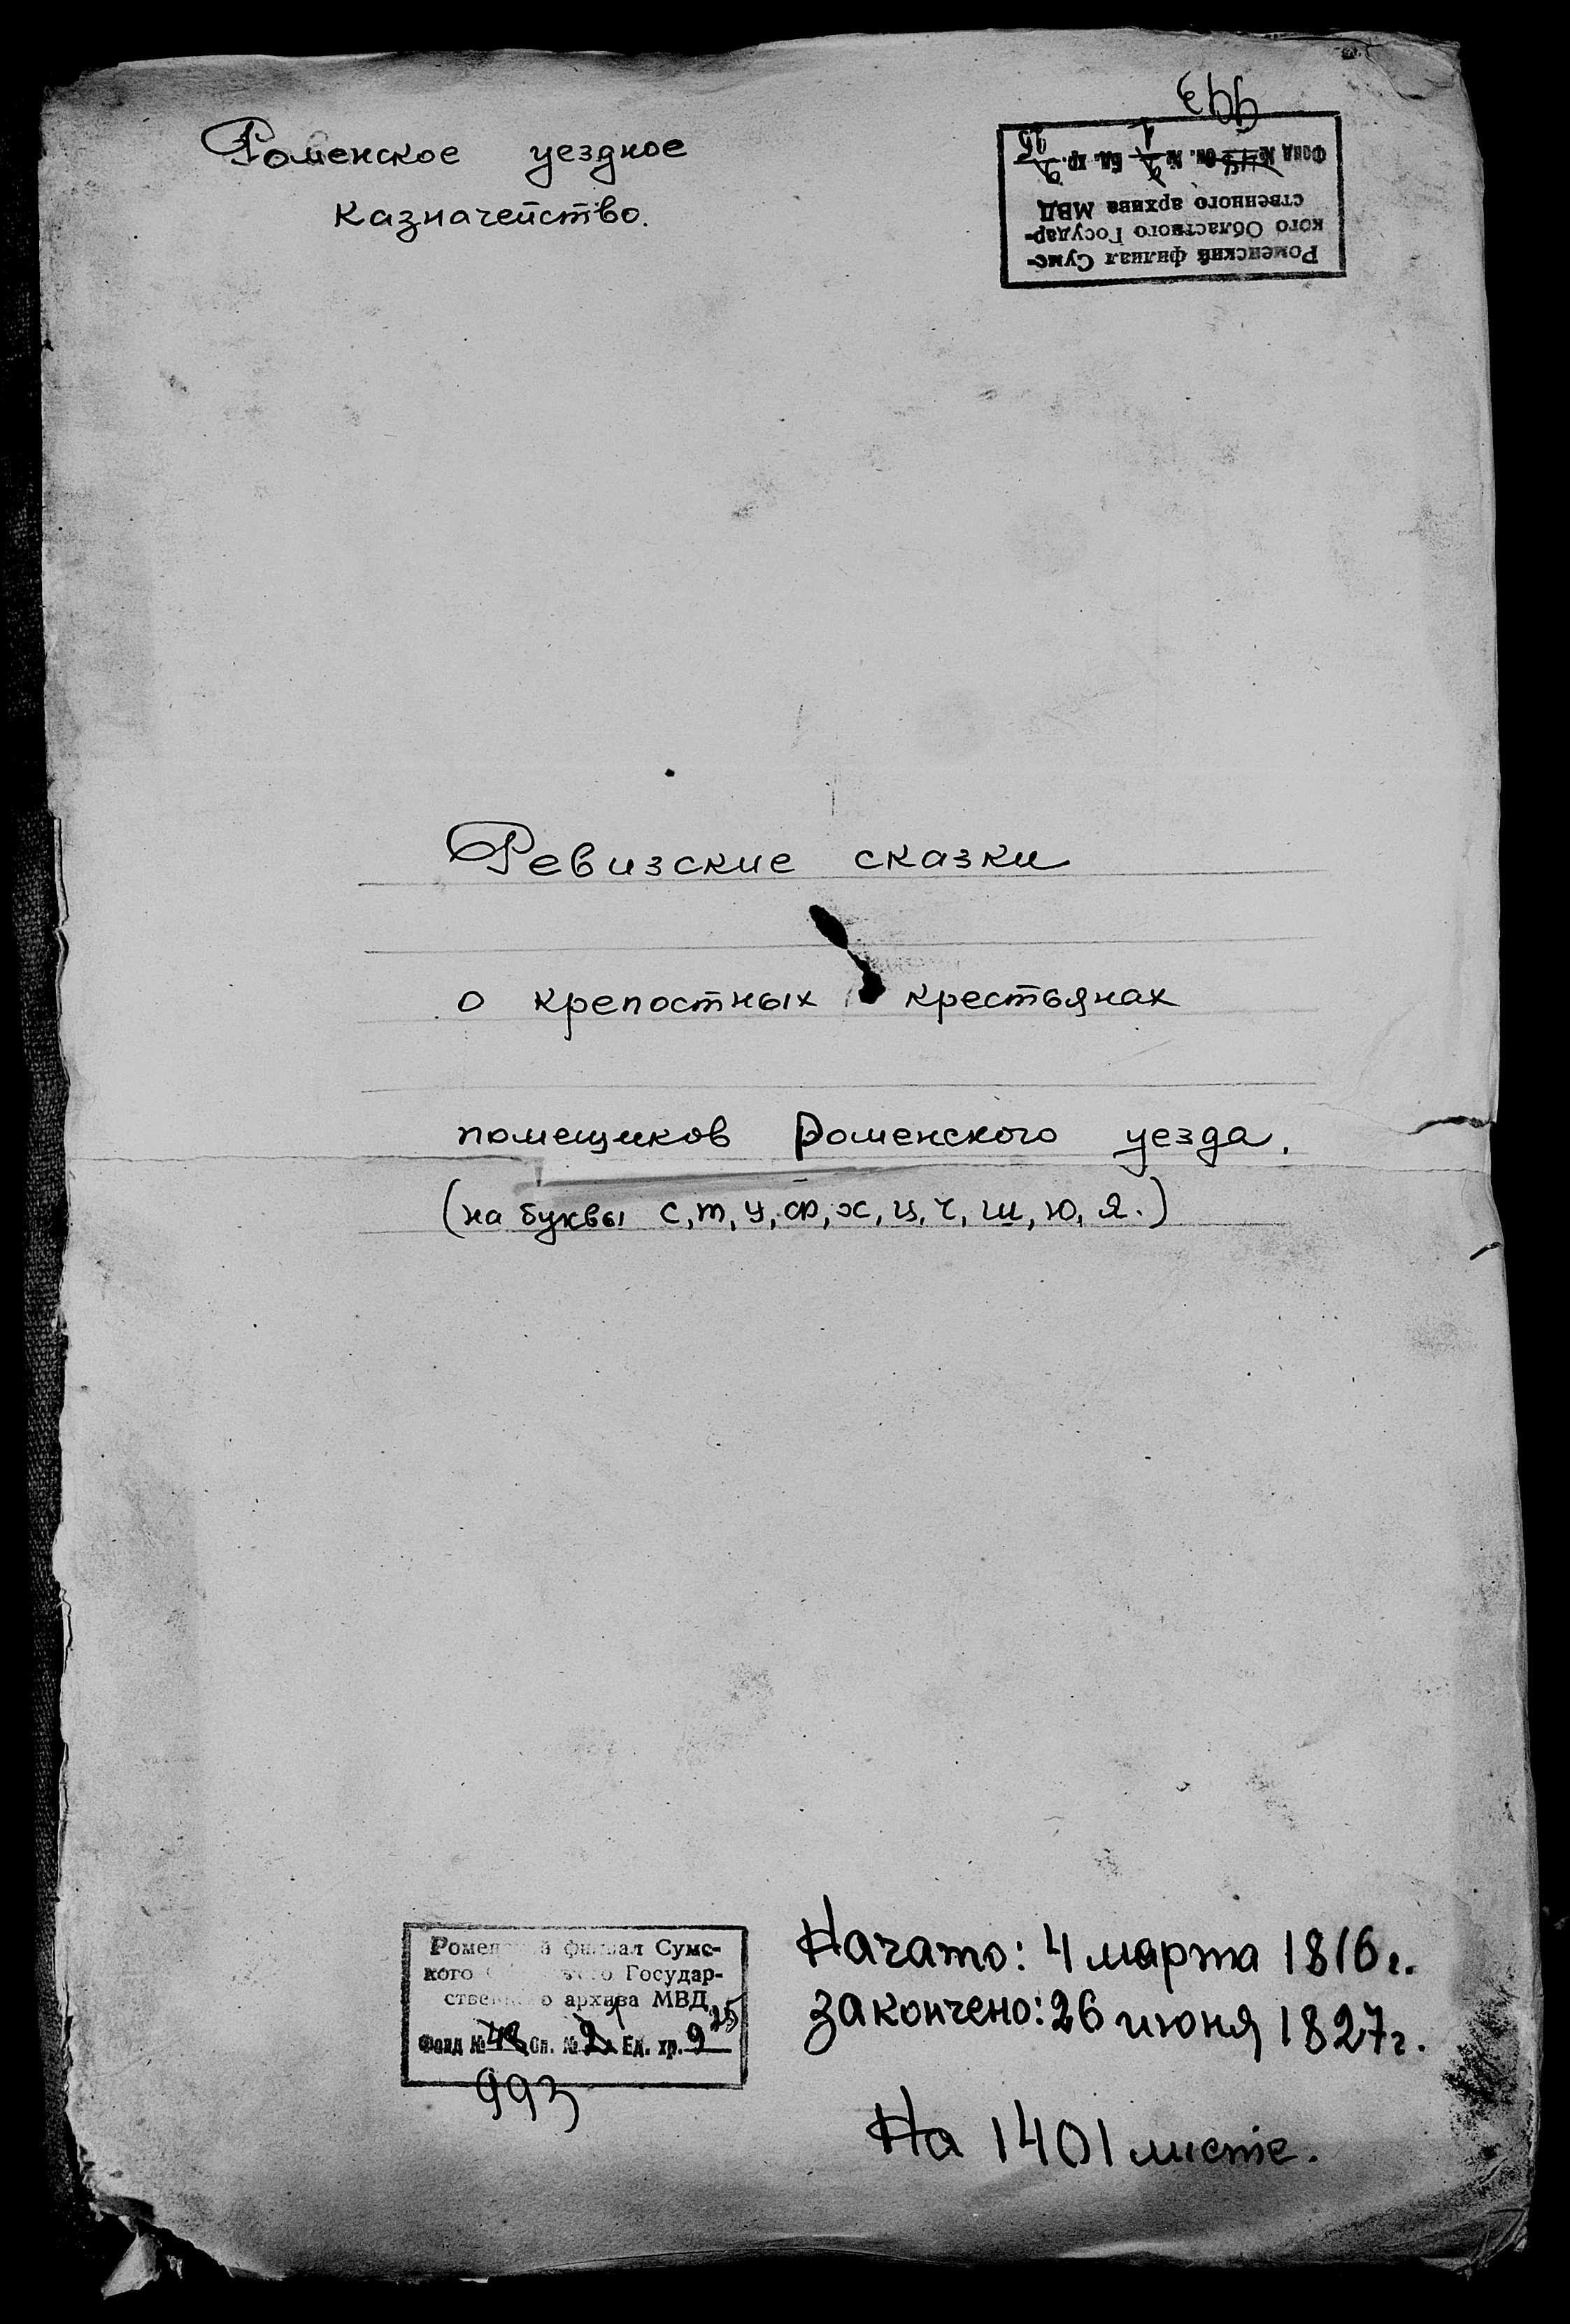 Роменское уездное
казначейство.
993
Роменский филиал Сумс-
кого Областного Государ-
ственного архива МВД
Фонд № Оп. № Ед. хр.
Ревизские сказки
о крепостных крестьянах
помещиков Роменского уезда.
(на буквы С, т, у, ф, х, ц, ч, ш, ю, я.)
Роменский филиал Сумс-
кого Областного Государ-
ственного архива МВД
Фонд № 48 Оп. № Ед. хр. 9
993
Начато: 4 марта 1816 г.
Закончено: 26 июня 1827 г.
На 1401 листе.